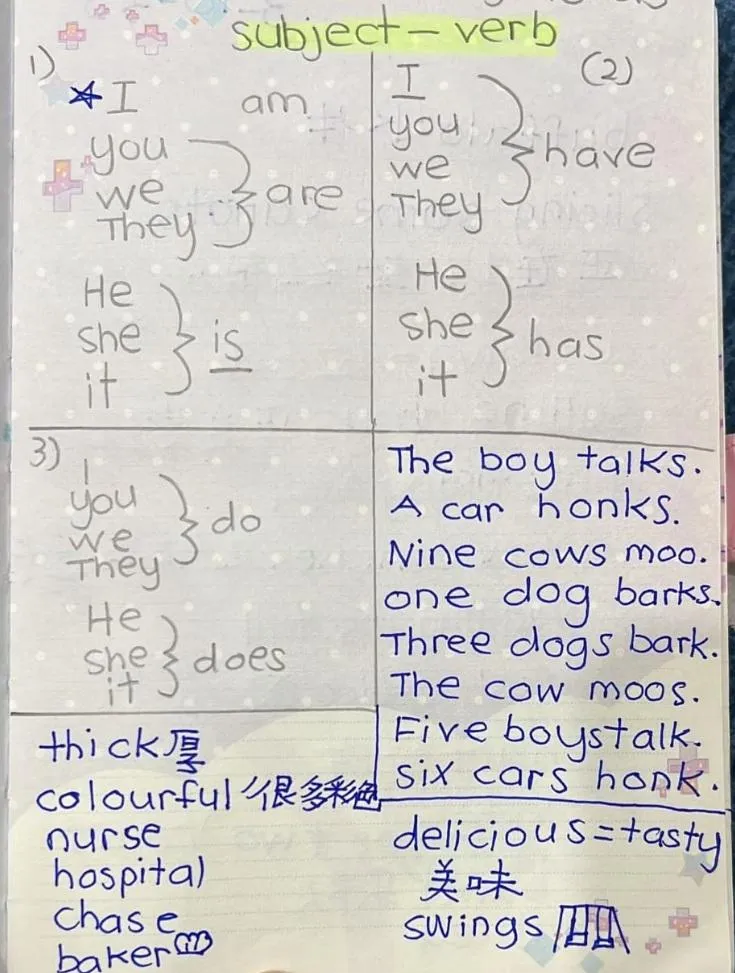 subject - verb
1)
I am
you
we
They
are
He
she
it
is
(2)
I
you
we
They
have
He
she
it
has
3)
I
you
we
They
do
He
she
it
does
The boy talks.
A car honks.
Nine cows moo.
one dog barks.
Three dogs bark.
The cow moos.
Five boys talk.
six cars honk.
thick 厚
colourful 很多彩色
nurse
hospital
chase
baker
delicious = tasty
美味
swings